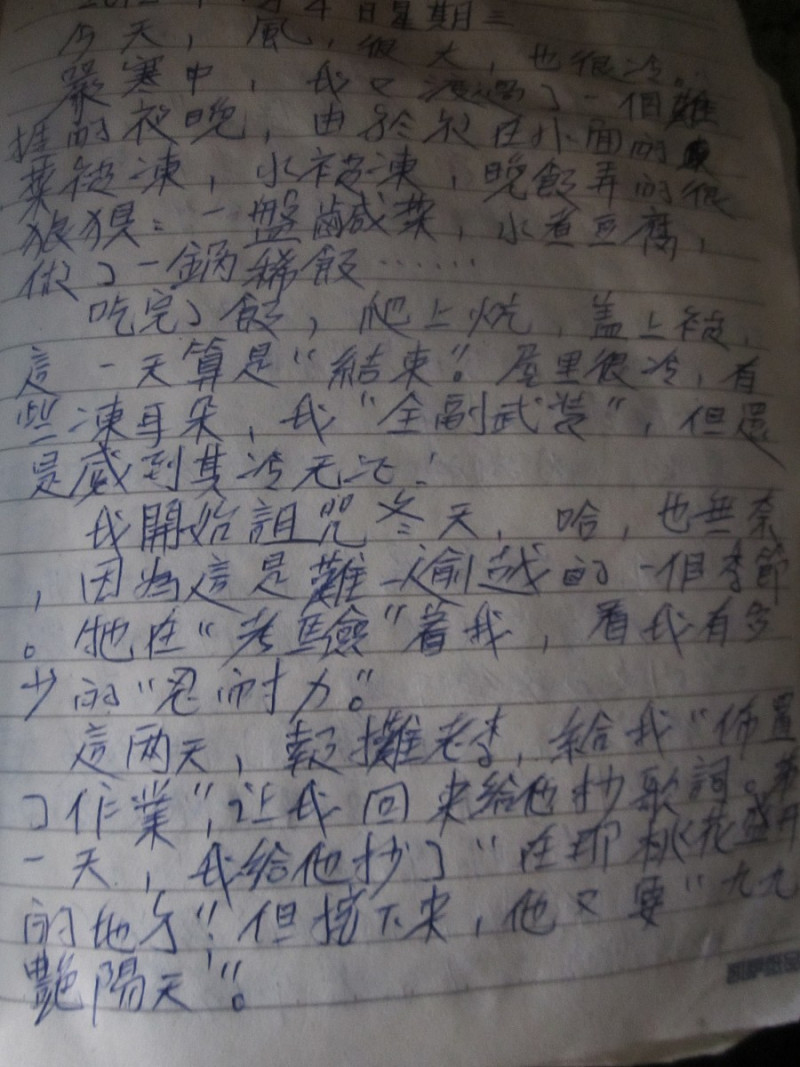 4日星期三
今天，風，很大，也很冷。
嚴寒中，我又渡過了一個難
挂的夜晚，由於放在外面的
菜被凍，水被凍，晚飯弄的很
狼狽：一盤鹹菜，水煮豆腐，
做了一鍋稀飯……
吃完了飯，爬上炕，盖上被，
這一天算是“結束”。屋里很冷，有
些凍耳朵，我“全副武裝”，但還
是感到其冷无比！
我開始詛咒冬天，哈，也無奈
，因為這是難逾越的一個季節
。牠在“考驗”着我，看我有多
少的“忍耐力”。
這两天，報攤老李，給我“佈置
了作業”，让我回來給他抄歌詞。第
一天，我給他抄了“在那桃花盛开
的地方”！但接下來，他又要“九九
艷陽天”。